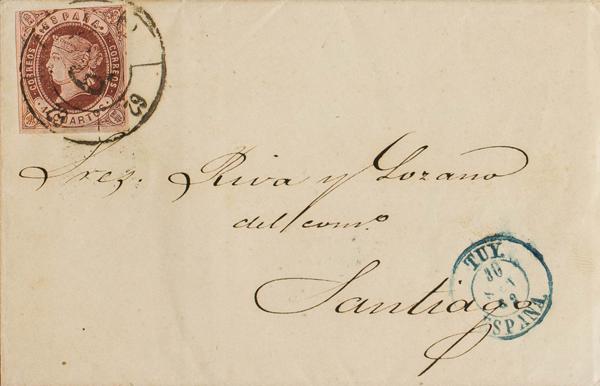 ESPAÑA
CORREOS
CORREOS
CUARTOS
63
Sres. Riva y Lozano
del comº
Santiago
TUY.
30
ESPAÑA.